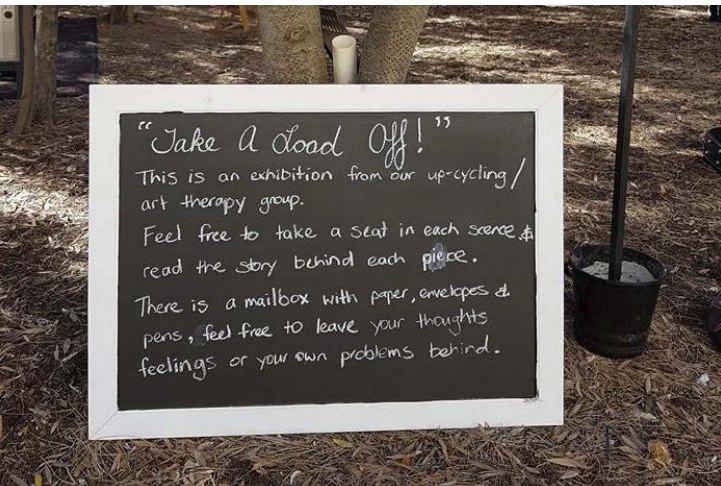 “Take A Load Off!”
This is an exhibition from our up-cycling/
art therapy group.
Feel free to take a seat in each scence &
read the story behind each piece.
There is a mailbox with paper, envelopes &
pens, feel free to leave your thoughts
feelings or your own problems behind.